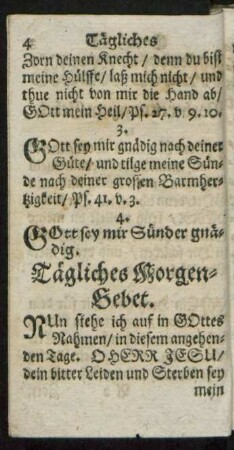 4 Tägliches
Zorn deinen Knecht / denn du bist
meine Hülffe / laß mich nicht / und
thue nicht von mir die Hand ab /
GOtt mein Heil / Ps. 27. v. 9. 10.
3.
GOtt sey mir gnädig nach deiner
Güte / und tilge meine Sün-
de nach deiner grossen Barmher-
tzigkeit / Ps. 41. v. 3.
4.
GOtt sey mir Sünder gnä-
dig.
Tägliches Morgen-
Gebet.
NUn stehe ich auf in GOttes
Nahmen / in diesem angehen-
den Tage. O HERR JESU /
dein bitter Leiden und Sterben sey
mein